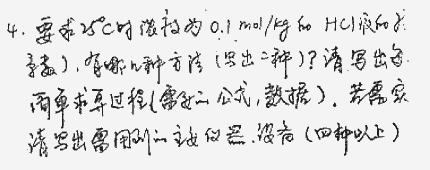 4. 要求25°C时浓度为0.1 mol/kg的HCl液的活
度系数), 有哪几种方法 (写出二种)? 请写出每
简单求算过程(需要的公式, 数据). 若需实
请写出需用到的主要仪器.设备 (四种以上)